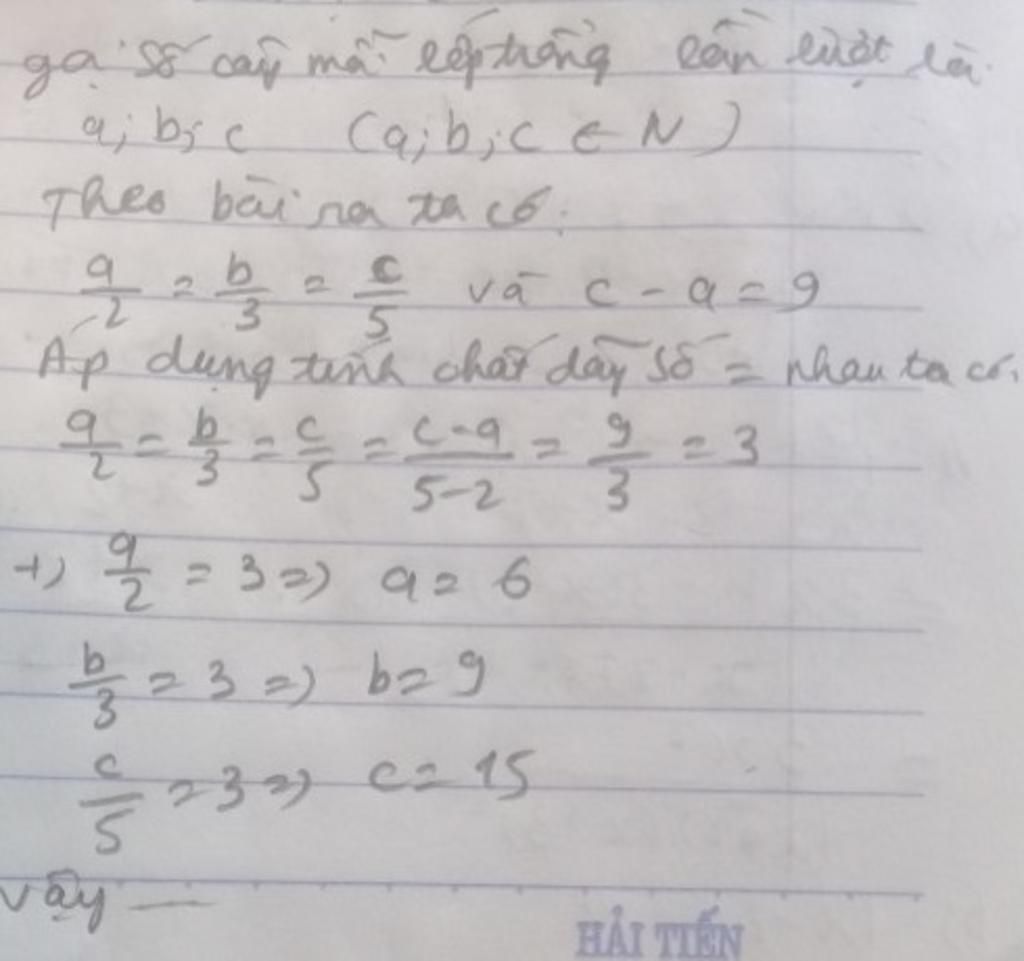 gọi số cây mỗi lớp trồng lần lượt là
a; b; c (a; b; c ∈ N)
Theo bài ra ta có:
a/2 = b/3 = c/5 và c - a = 9
Áp dụng tính chất dãy số = nhau ta có:
a/2 = b/3 = c/5 = c-a/5-2 = 9/3 = 3
+) a/2 = 3 => a = 6
b/3 = 3 => b = 9
c/5 = 3 => c = 15
vậy —
HẢI TIẾN